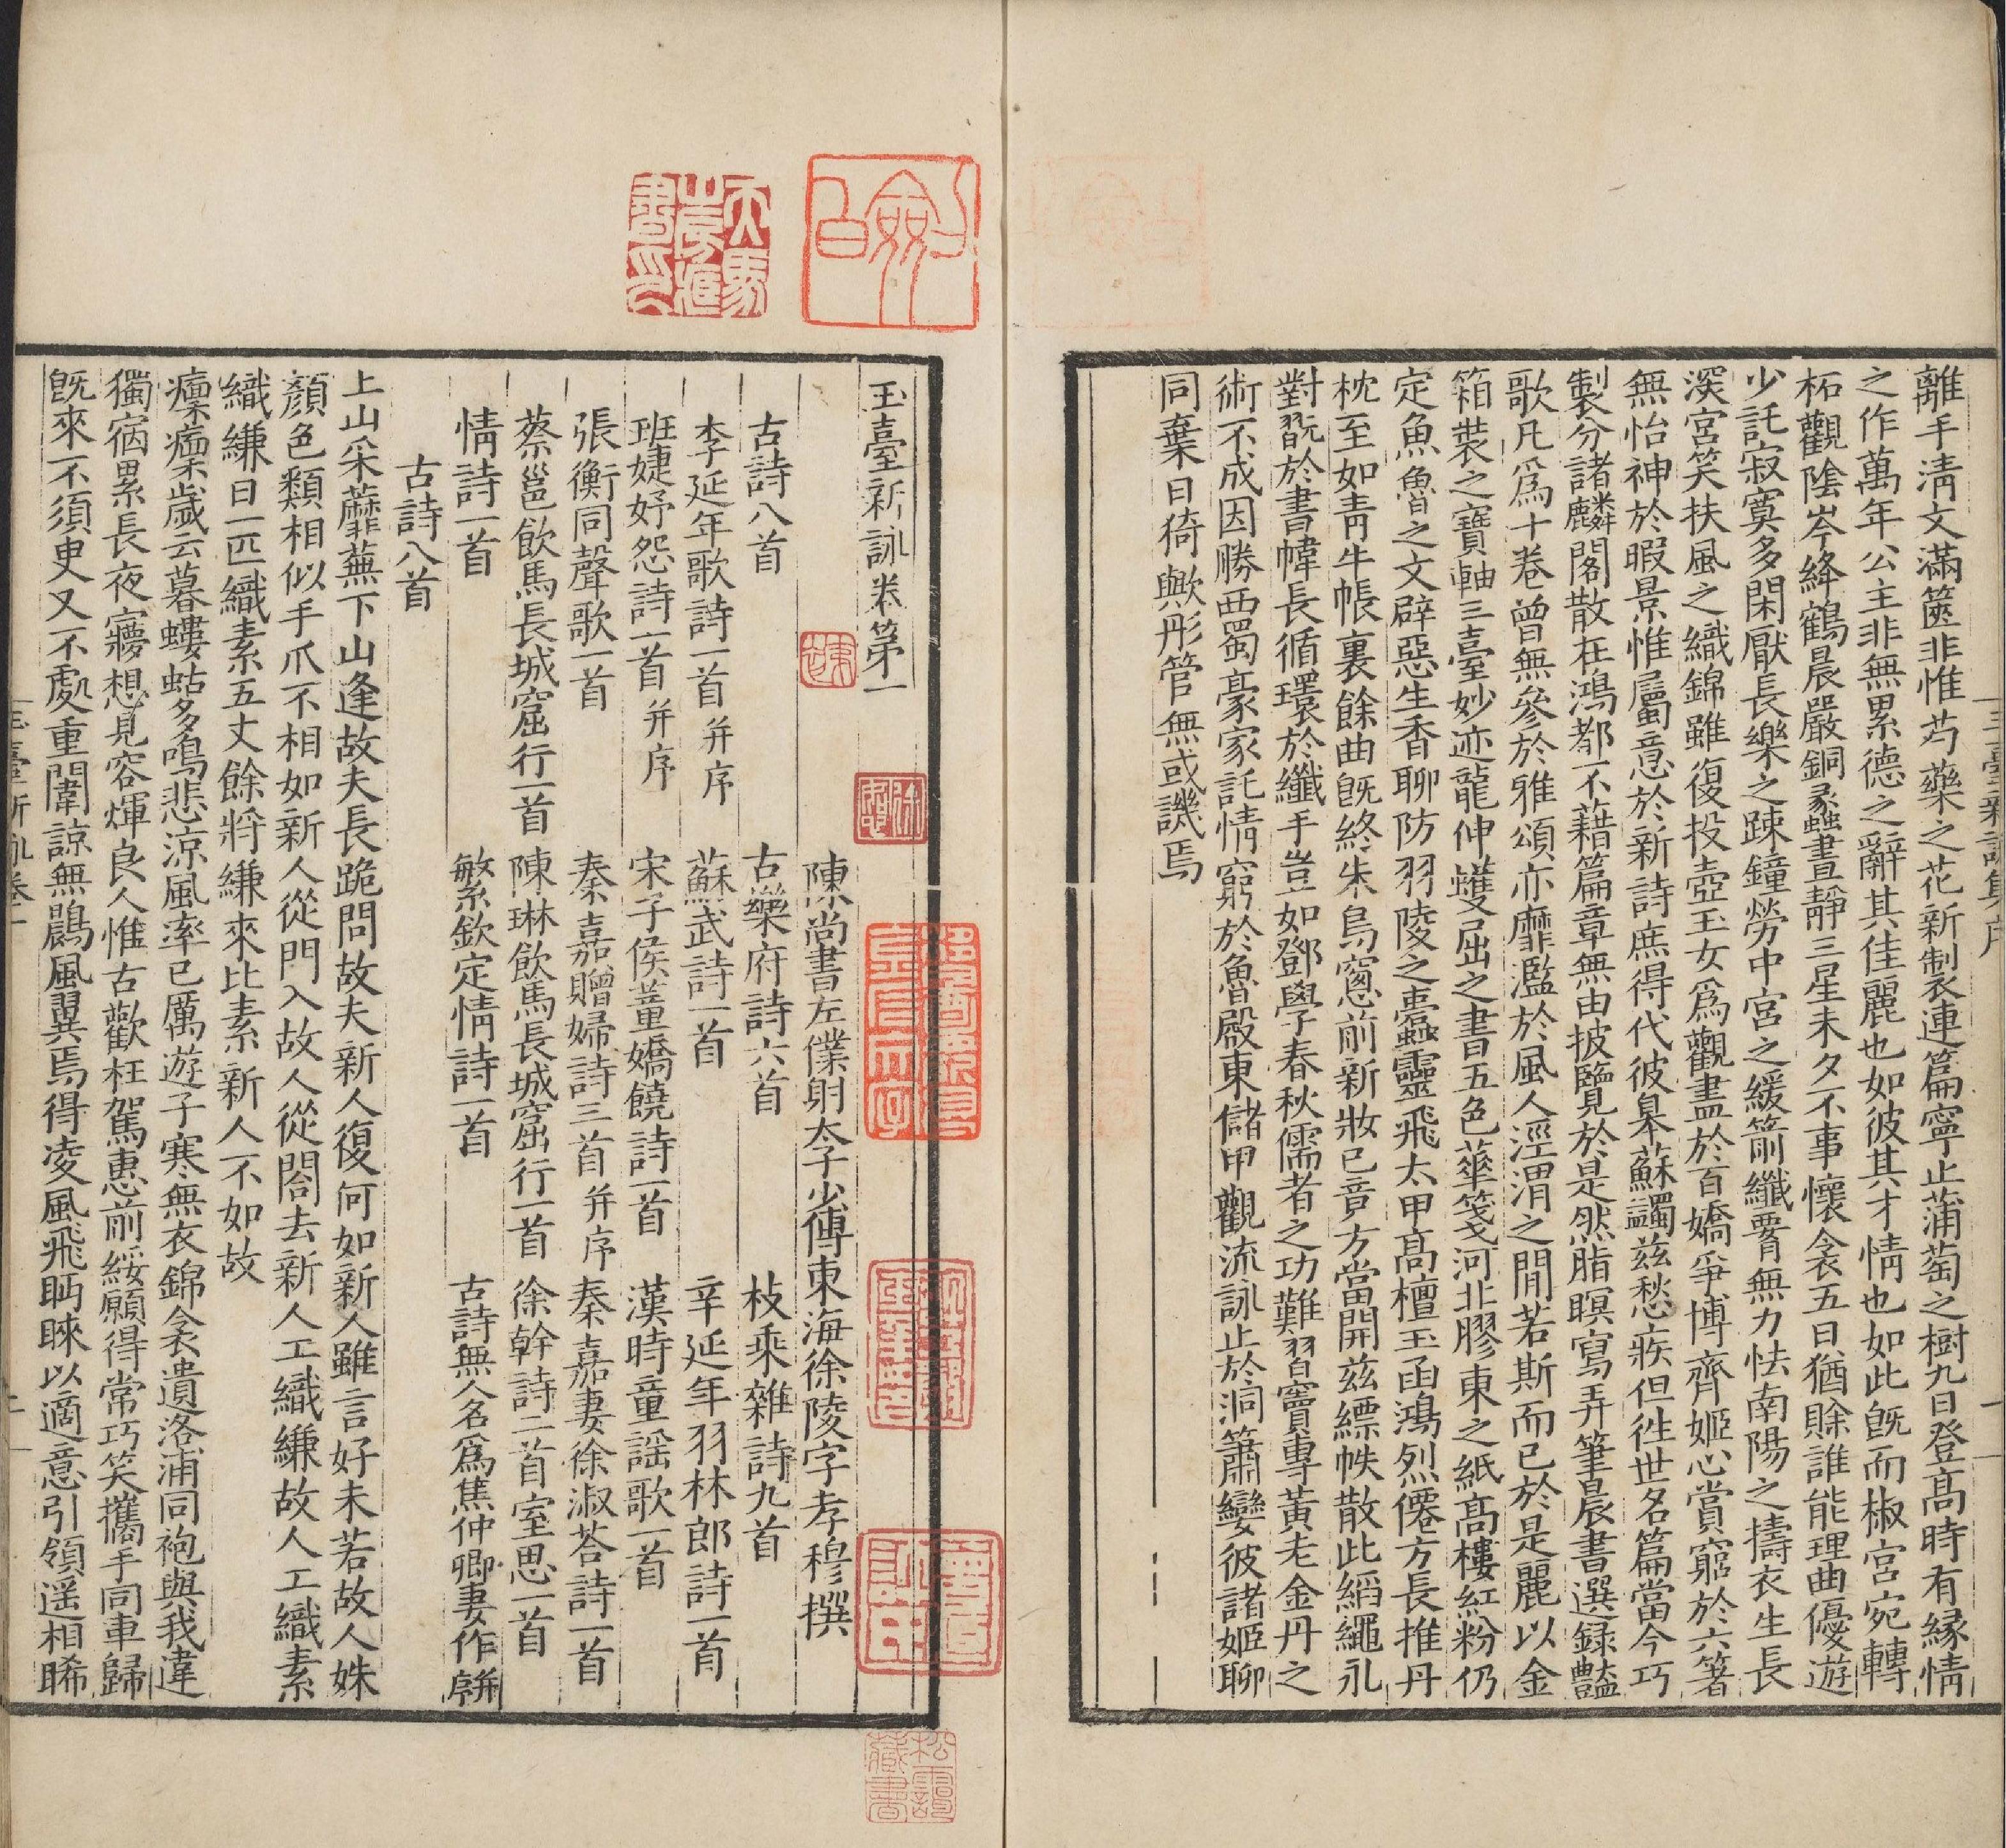 離手清文滿篋非惟芍藥之花新製連篇寧止蒲萄之樹九日登髙時有緣情
之作萬年公主非無累德之辭其佳麗也如彼其才情也如此旣而椒宮宛轉
柘觀陰岑絳鶴晨嚴銅蠡晝靜三星未夕不事懷衾五日猶賖誰能理曲優遊
少託寂寞多閑厭長樂之踈鐘勞中宮之緩箭纖腰無力怯南陽之擣衣生長
深宮笑扶風之織錦雖復投壺玉女爲觀盡於百嬌爭博齊姬心賞窮於六箸
無怡神於暇景惟屬意於新詩庶得代彼皋蘇蠲茲愁疾但徃世名篇當今巧
製分諸麟閣散在鴻都不藉篇章無由披覽於是然脂暝寫弄筆晨書選録豔
歌凡爲十卷曾無參於雅頌亦靡濫於風人涇渭之間若斯而已於是麗以金
箱裝之寶軸三臺妙迹龍伸蠖屈之書五色華箋河北膠東之紙髙樓紅粉仍
定魚魯之文辟惡生香聊防羽陵之蠹靈飛太甲髙檀玉函鴻烈僊方長推丹
枕至如靑牛帳裏餘曲旣終朱鳥窻前新妝已竟方當開茲縹帙散此縚繩永
對翫於書幃長循環於纖手豈如鄧學春秋儒者之功難習竇專黃老金丹之
術不成因勝西蜀豪家託情窮於魯殿東儲甲觀流詠止於洞簫孌彼諸姬聊
同棄日猗歟彤管無或譏焉
玉臺新詠卷第一
陳尚書左僕射太子少傅東海徐陵字孝穆撰
古詩八首 古樂府詩六首 枚乘雜詩九首
李延年歌詩一首并序 蘇武詩一首 辛延年羽林郎詩一首
班婕妤怨詩一首并序 宋子侯董嬌饒詩一首 漢時童謡歌一首
張衡同聲歌一首 秦嘉贈婦詩三首并序 秦嘉妻徐淑荅詩一首
蔡邕飲馬長城窟行一首 陳琳飲馬長城窟行一首 徐幹詩二首室思一首
情詩一首 繁欽定情詩一首 古詩無人名爲焦仲卿妻作并序
古詩八首
上山采蘼蕪下山逢故夫長跪問故夫新人復何如新人雖言好未若故人姝
顔色類相似手爪不相如新人從門入故人從閤去新人工織縑故人工織素
織縑日一匹織素五丈餘將縑來比素新人不如故
凜凜歲云暮螻蛄多鳴悲涼風率已厲遊子寒無衣錦衾遺洛浦同袍與我違
獨宿累長夜寢想見容煇良人惟古歡枉駕惠前綏願得常巧笑攜手同車歸
旣來不須臾又不處重闈諒無鷐風翼焉得凌風飛眄睞以適意引領遥相睎
松雪
藏書